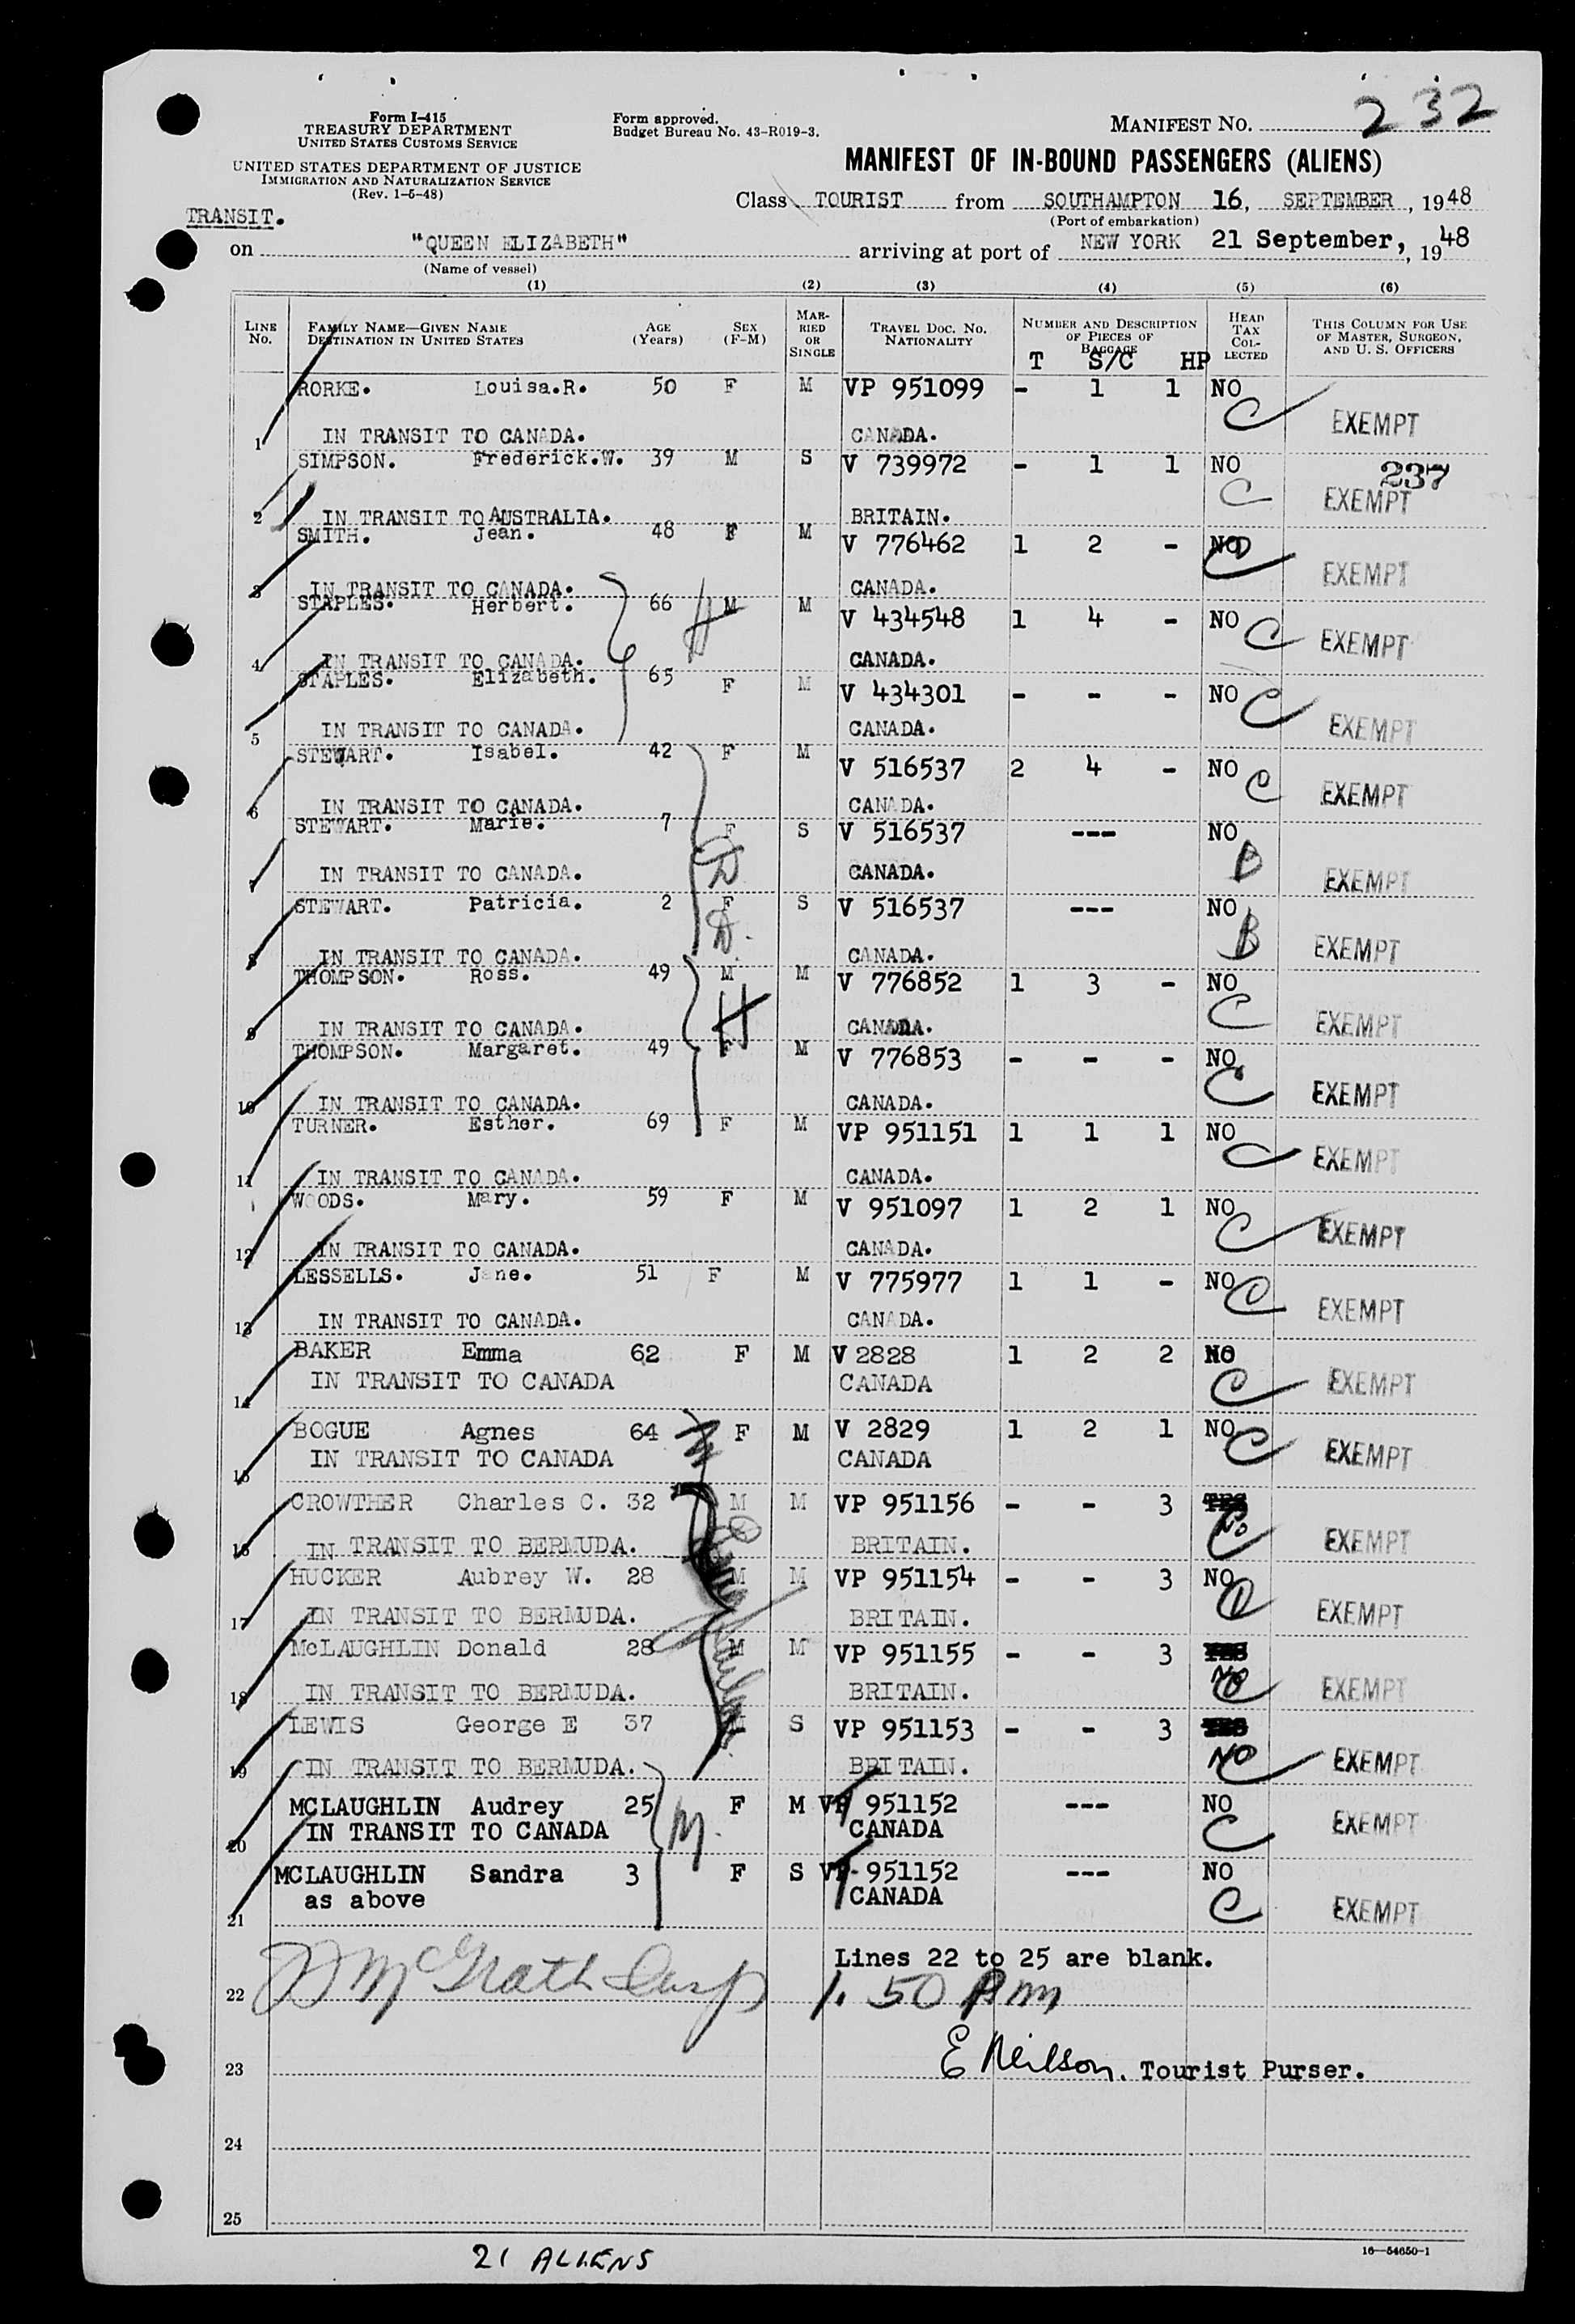 Form I-415
TREASURY DEPARTMENT
UNITED STATES CUSTOMS SERVICE
UNITED STATES DEPARTMENT OF JUSTICE
IMMIGRATION AND NATURALIZATION SERVICE
(Rev. 1-5-48)
Form approved.
Budget Bureau No. 43-R019-3.
MANIFEST NO. 232
MANIFEST OF IN-BOUND PASSENGERS (ALIENS)
Class TOURIST from SOUTHAMPTON 16, SEPTEMBER, 1948
(Port of embarkation)
TRANSIT.
on "QUEEN ELIZABETH" arriving at port of NEW YORK 21 September, 1948
(Name of vessel)
(1) (2) (3) (4) (5) (6)
LINE No. FAMILY NAME—GIVEN NAME DESTINATION IN UNITED STATES AGE (Years) SEX (F-M) MARRIED OR SINGLE TRAVEL DOC. NO. NATIONALITY NUMBER AND DESCRIPTION OF PIECES OF BAGGAGE HEAD TAX COLLECTED THIS COLUMN FOR USE OF MASTER, SURGEON, AND U. S. OFFICERS
T S/C HP
RORKE. Louisa.R. 50 F M VP 951099 - 1 1 NO C
1 IN TRANSIT TO CANADA. CANADA. EXEMPT
SIMPSON. Frederick.W. 39 M S V 739972 - 1 1 NO C 237
2 IN TRANSIT TO AUSTRALIA. BRITAIN. EXEMPT
SMITH. Jean. 48 F M V 776462 1 2 - NO C
3 IN TRANSIT TO CANADA. CANADA. EXEMPT
STAPLES. Herbert. 66 M M V 434548 1 4 - NO C
4 IN TRANSIT TO CANADA. CANADA. EXEMPT
STAPLES. Elizabeth. 65 F M V 434301 - - - NO C
5 IN TRANSIT TO CANADA. CANADA. EXEMPT
STEWART. Isabel. 42 F M V 516537 2 4 - NO C
6 IN TRANSIT TO CANADA. CANADA. EXEMPT
STEWART. Marie. 7 F S V 516537 --- NO B
7 IN TRANSIT TO CANADA. CANADA. EXEMPT
STEWART. Patricia. 2 F S V 516537 --- NO B
8 IN TRANSIT TO CANADA. CANADA. EXEMPT
THOMPSON. Ross. 49 M M V 776852 1 3 - NO C
9 IN TRANSIT TO CANADA. CANADA. EXEMPT
THOMPSON. Margaret. 49 H F M V 776853 - - - NO C
10 IN TRANSIT TO CANADA. CANADA. EXEMPT
TURNER. Esther. 69 F M VP 951151 1 1 1 NO C
11 IN TRANSIT TO CANADA. CANADA. EXEMPT
WOODS. Mary. 59 F M V 951097 1 2 1 NO C
12 IN TRANSIT TO CANADA. CANADA. EXEMPT
LESSELLS. Jane. 51 F M V 775977 1 1 - NO C
13 IN TRANSIT TO CANADA. CANADA. EXEMPT
BAKER Emma 62 F M V 2828 1 2 2 NO C
14 IN TRANSIT TO CANADA CANADA EXEMPT
BOGUE Agnes 64 F M V 2829 1 2 1 NO C
15 IN TRANSIT TO CANADA CANADA EXEMPT
CROWTHER Charles C. 32 M M VP 951156 - - 3 YES No C
16 IN TRANSIT TO BERMUDA. BRITAIN. EXEMPT
HUCKER Aubrey W. 28 M M VP 951154 - - 3 NO C
17 IN TRANSIT TO BERMUDA. BRITAIN. EXEMPT
McLAUGHLIN Donald 28 M M VP 951155 - - 3 YES NO C
18 IN TRANSIT TO BERMUDA. BRITAIN. EXEMPT
LEWIS George E 37 M S VP 951153 - - 3 YES NO C
19 IN TRANSIT TO BERMUDA. BRITAIN. EXEMPT
MCLAUGHLIN Audrey 25 M. F M VP 951152 --- NO C
20 IN TRANSIT TO CANADA CANADA EXEMPT
MCLAUGHLIN Sandra 3 F S VP-951152 --- NO C
21 as above CANADA EXEMPT
Lines 22 to 25 are blank.
22 McGrath Insp 1.50 Pm
23 E Neilson. Tourist Purser.
24
25
21 ALIENS
16—54650-1